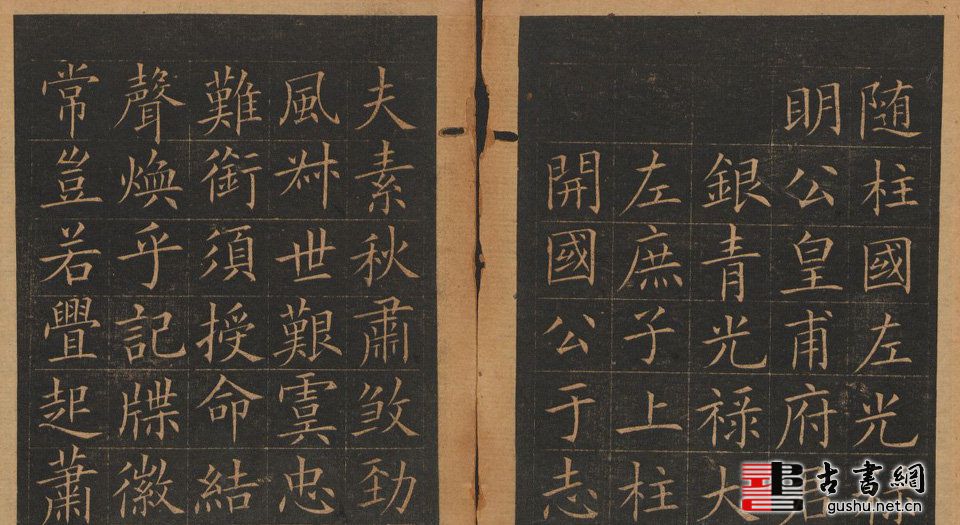 随柱國左光
明公皇甫府
銀青光禄大
左庶子上柱
開國公于志
夫素秋肅煞勁
風叔世艱虞忠
難銜須授命結
聲煥乎記牒徽
常豈若舋起蕭
古書網
gushu.net.cn